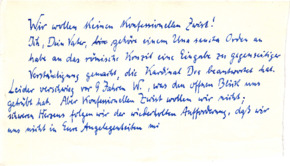 Wir wollen keinen konfessionellen Zwist!
Ich, Dein Vater, gehöre einem Una sancta Orden an
hat an das römische Konzil eine Eingabe zu gegenseitiger
Verständigung gemacht, die Kardinal Doe beantwortet hat.
Leider verschwieg vor 9 Jahren W., was den offnen Blick uns
getrübt hat. Aber konfessionellen Zwist wollen wir nicht;
schweren Herzens folgen wir der wiederholten Aufforderung, daß wir
uns nicht in Eure Angelegenheiten mi